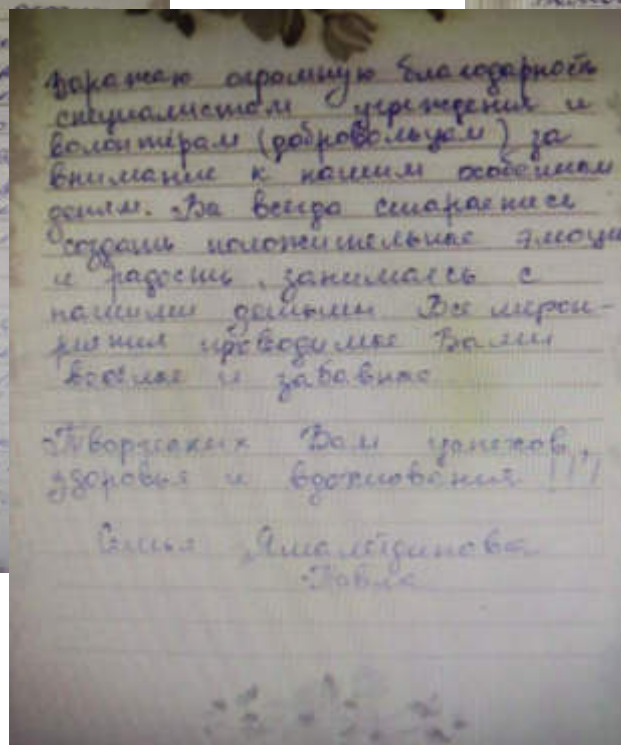 Выражаю огромную благодарность
специалистам учреждения и
волонтёрам (добровольцам) за
внимание к нашим особенным
детям. Вы всегда стараетесь
создать положительные эмоции
и радость, занимаясь с
нашими детьми Все меропри-
ятия проводимые Вами
весёлые и забавные
Творческих Вам успехов,
здоровья и вдохновения!!!
Семья Ямалетдинова
Павла